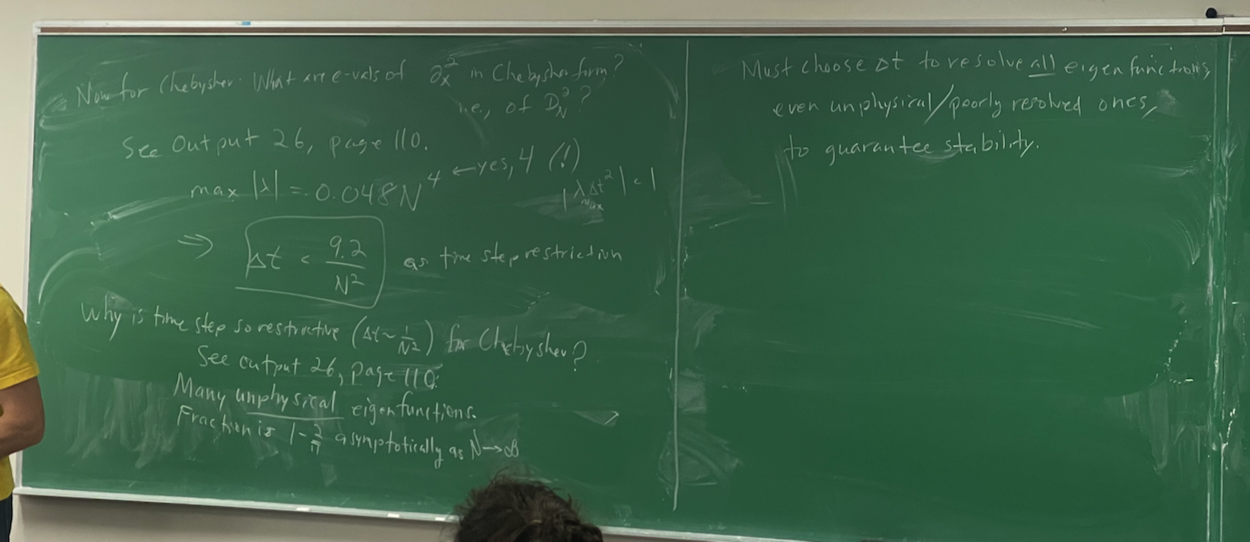 Now for Chebyshev. What are e-vals of ∂x² in Chebyshev form?
i.e., of D_N²?
See Output 26, page 110.
max |λ| = 0.048N⁴ ← yes, 4 (!)
|λmax Δt²| < 1
⇒ Δt < 9.2/N² as time step restriction
Why is time step so restrictive (Δt ~ 1/N²) for Chebyshev?
See output 26, page 110.
Many unphysical eigenfunctions.
Fraction is 1 - 2/π asymptotically as N→∞
Must choose Δt to resolve all eigenfunctions,
even unphysical/poorly resolved ones,
to guarantee stability.